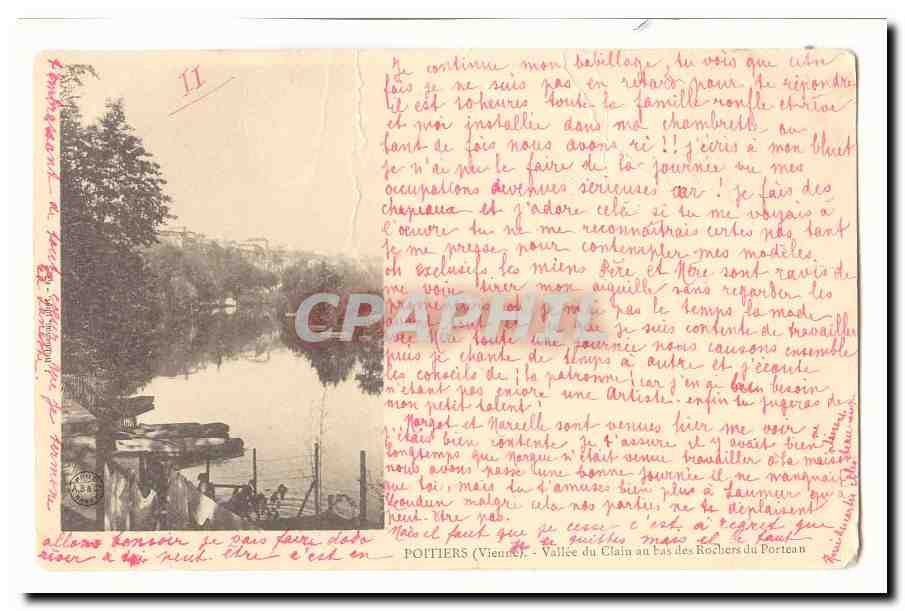 II
Je continue mon babillage, tu vois que cette
fois je ne suis pas en retard pour te répondre
il est 10 heures toute la famille ronfle et rêve
et moi installée dans ma chambrette ou
tant de fois nous avons ri !! j'écris à mon bluet
je n'ai pu le faire de la journée vu mes
occupations devenues sérieuses car ! je fais des
chapeaux et j'adore celà si tu me voyais à
l'œuvre tu ne me reconnaîtrais certes pas, tant
je me presse pour contempler mes modèles
oh exclusifs les miens Père et Mère sont ravis de
me voir tirer mon aiguille sans regarder les
je n'ai pas le temps la mode
je suis contente de travailler
toute une journée nous causons ensemble
puis je chante de temps à autre et j'écoute
les conseils de ¡la patronne! car j'en ai bien besoin
n'étant pas encore une Artiste. enfin tu jugeras de
mon petit talent !
Margot et Marcelle sont venues hier me voir
j'étais bien contente je t'assure il y avait bien
longtemps que Margue n'était venue travailler à la maison
nous avons passé une bonne journée il ne manquait
que toi, mais tu t'amuses bien plus à Saumur qu'à
Loudun malgré cela nos parties ne te déplaisent
peut-être pas.
Mais il faut que je cesse c'est à regret que
je te quittes mais il le faut
allons bonsoir je vais faire dodo
rêver à toi peut-être c'est en
t'embrassant de tout cœur que je termine
CPAPHIL
POITIERS (Vienne). - Vallée du Clain au bas des Rochers du Porteau